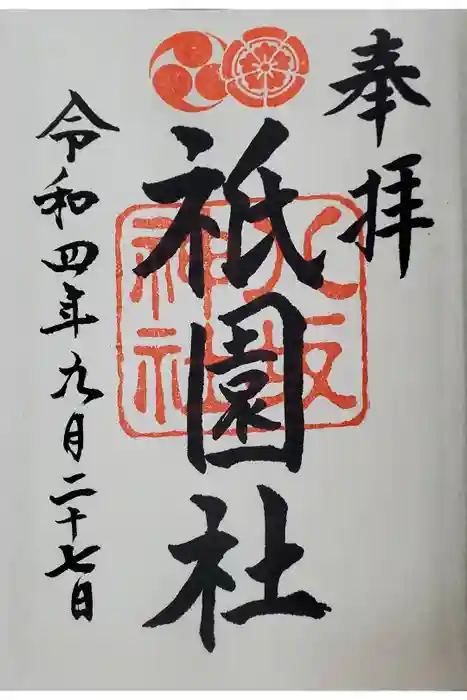 奉拝
祇園社
八坂
神社
令和四年九月二十七日